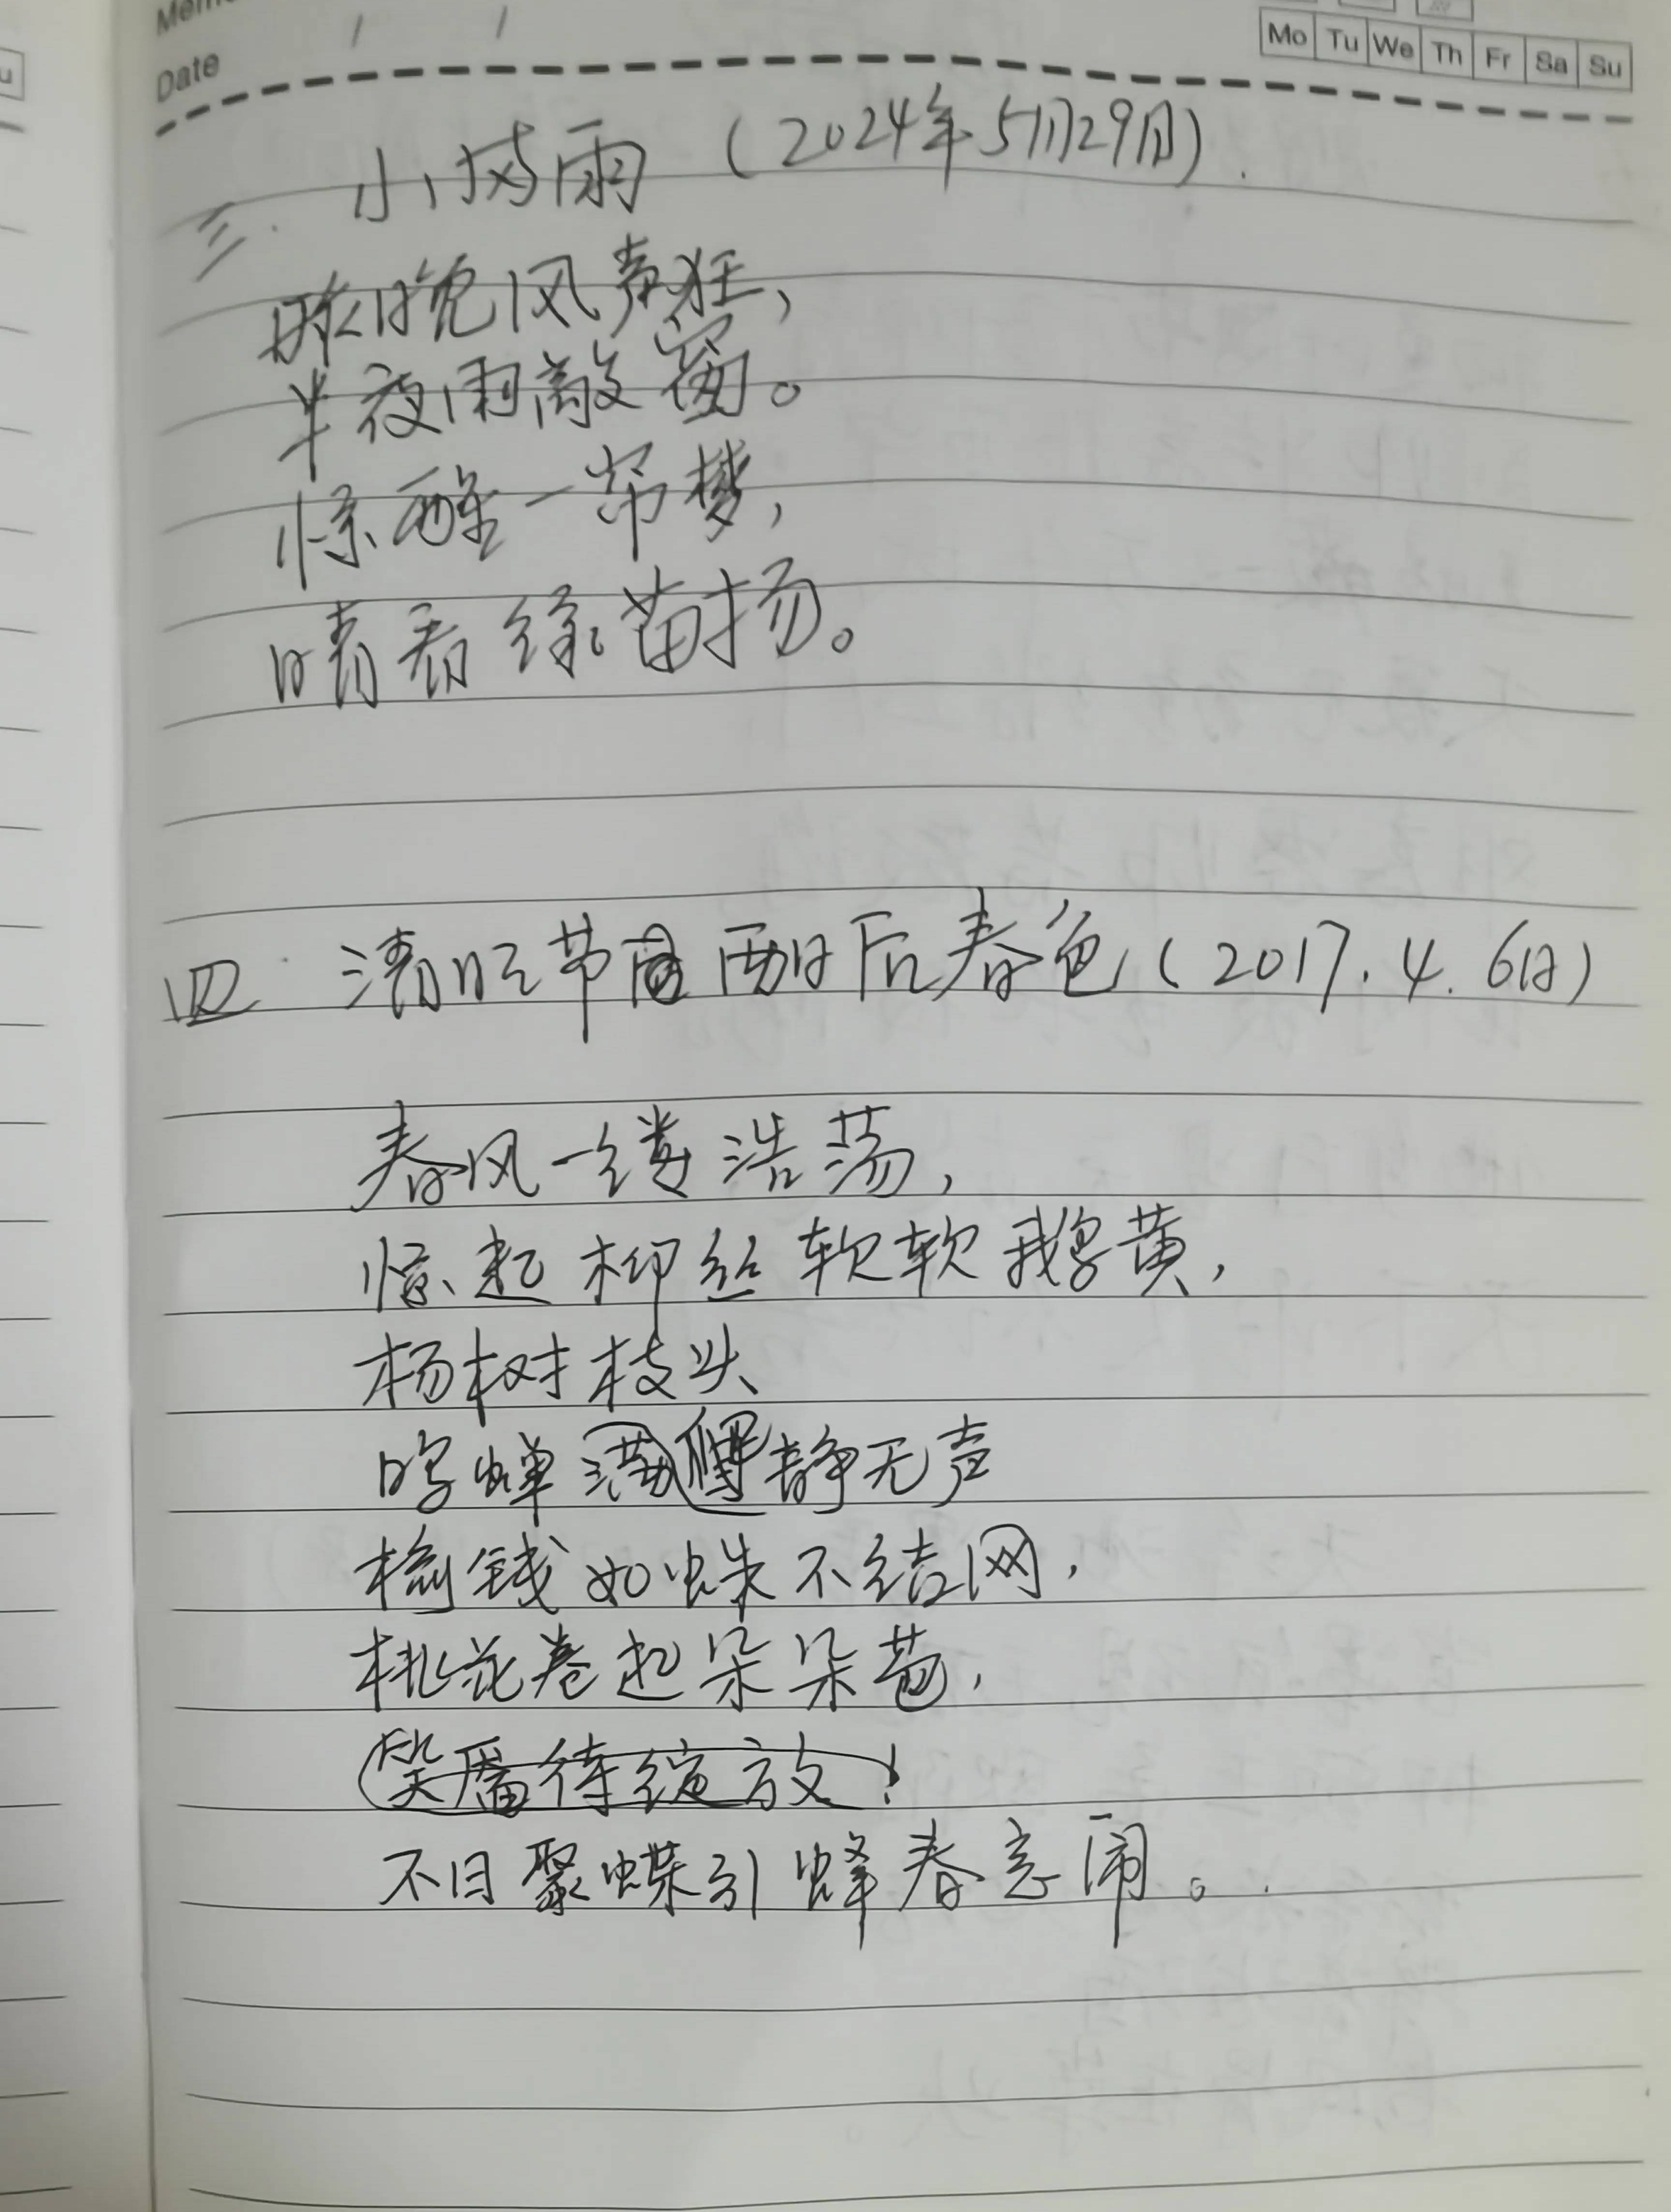 Date / /
Mo Tu We Th Fr Sa Su
三. 小风雨(2024年5月29日).
昨晚风声狂,
半夜雨敲窗。
惊醒一帘梦,
晴看绿苗扬。
四. 清明节雨后春色(2017.4.6日)
春风一缕浩荡,
惊起柳丝软软鹅黄,
杨树枝头
鸣蝉满静无声
榆钱如蛛不结网,
桃花卷起朵朵苞,
笑靥待绽放!
不日聚蝶引蜂春意闹。